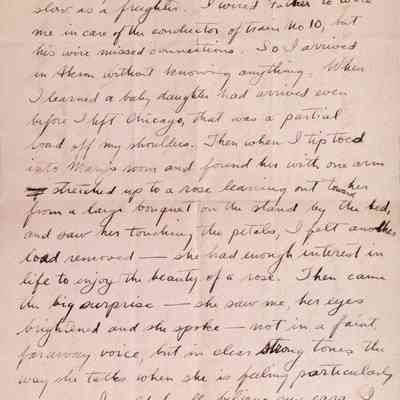 slow as a freighter. I wired Father to wire
me in care of the conductor of train No 10, but
his wire missed connections. So I arrived
in Akron without knowing anything. When
I learned a baby daughter had arrived even
before I left Chicago, that was a partial
load off my shoulders. Then when I tiptoed
into Mary's room and found her with one arm
stretched up to a rose leaning out toward her
from a large bouquet on the stand by the bed,
and saw her touching the petals, I felt another
load removed — she had enough interest in
life to enjoy the beauty of a rose. Then came
the big surprise — she saw me, her eyes
brightened and she spoke — not in a faint,
faraway voice, but in clear strong tones the
way she talks when she is feeling particularly
believe my ears. I